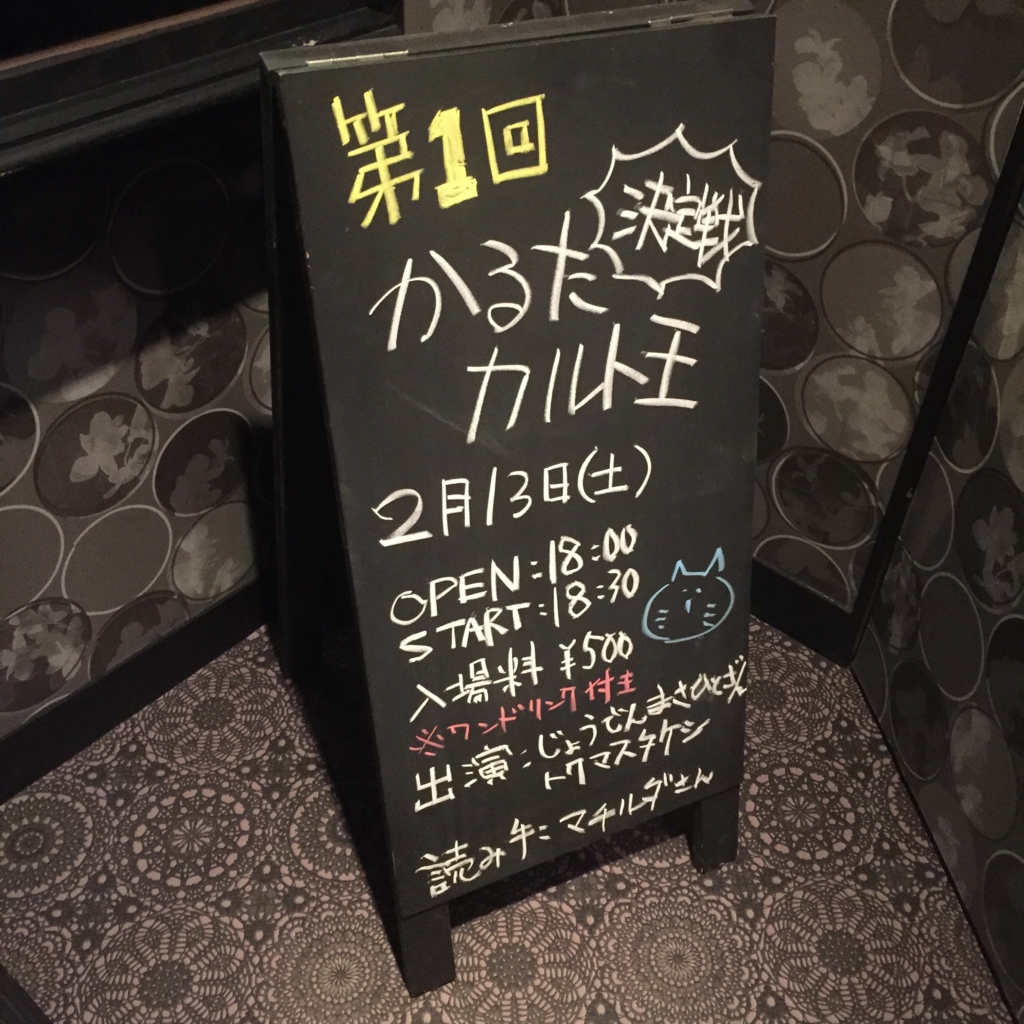 第1回
決定戦
かるた
カルト王
2月13日(土)
OPEN:18:00
START:18:30
入場料 ¥500
※ワンドリンク付き
出演:じょうどんまさひとぎん
トクマスタケシ
読み手:マチルダさん